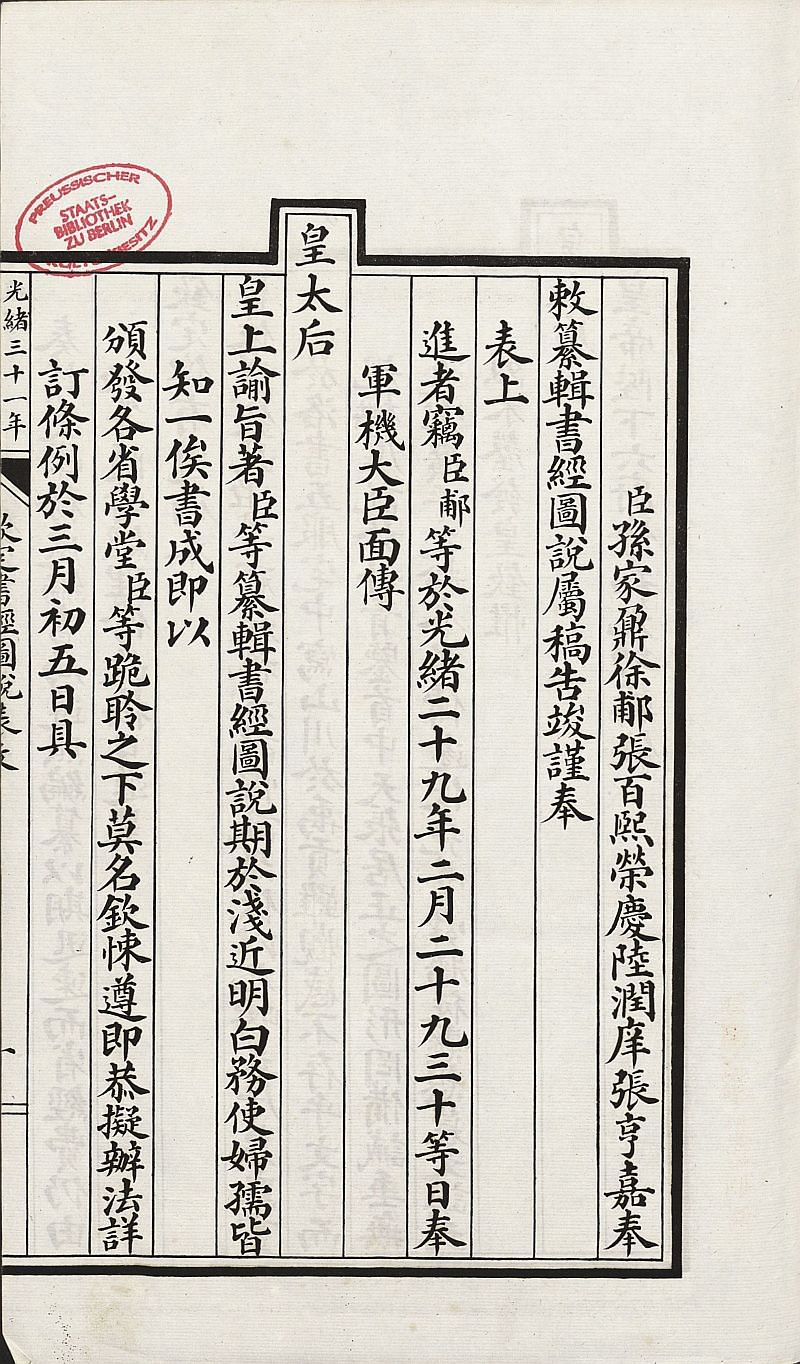 臣孫家鼐徐郙張百熙榮慶陸潤庠張亨嘉奉
敕纂輯書經圖說屬稿告竣謹奉
表上
進者竊臣郙等於光緒二十九年二月二十九三十等日奉
軍機大臣面傳
皇太后
皇上諭旨著臣等纂輯書經圖說期於淺近明白務使婦孺皆
知一俟書成即以
頒發各省學堂臣等跪聆之下莫名欽悚遵即恭擬辦法詳
訂條例於三月初五日具
光緒三十一年
欽定書經圖說表文
一
PREUSSISCHER
STAATS-
BIBLIOTHEK
ZU BERLIN